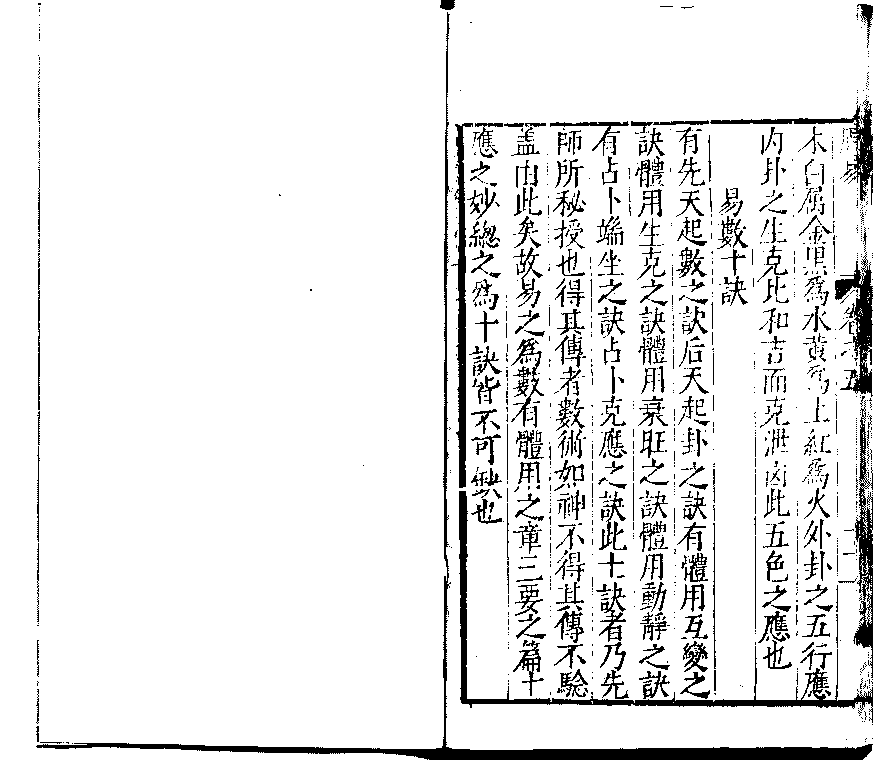 木白属金黒爲水黄爲土紅爲火外卦之五行應
内卦之生克比和吉而克泄凶此五色之應也
易數十訣
有先天起數之訣后天起卦之訣有體用互變之
訣體用生克之訣體用衰旺之訣體用動靜之訣
有占卜端坐之訣占卜克應之訣此十訣者乃先
師所秘授也得其傳者數術如神不得其傳不驗
盖由此矣故易之爲數有體用之章三要之篇十
應之妙緫之爲十訣皆不可缺也